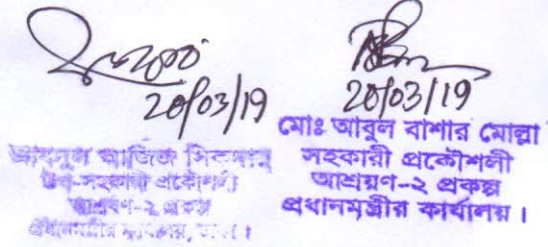 20/03/19
আবদুল আজিজ সিকদার
উপ-সহকারী প্রকৌশলী
আশ্রয়ণ-২ প্রকল্প
প্রধানমন্ত্রীর কার্যালয়, ঢাকা।
20/03/19
মোঃ আবুল বাশার মোল্লা
সহকারী প্রকৌশলী
আশ্রয়ণ-২ প্রকল্প
প্রধানমন্ত্রীর কার্যালয়।